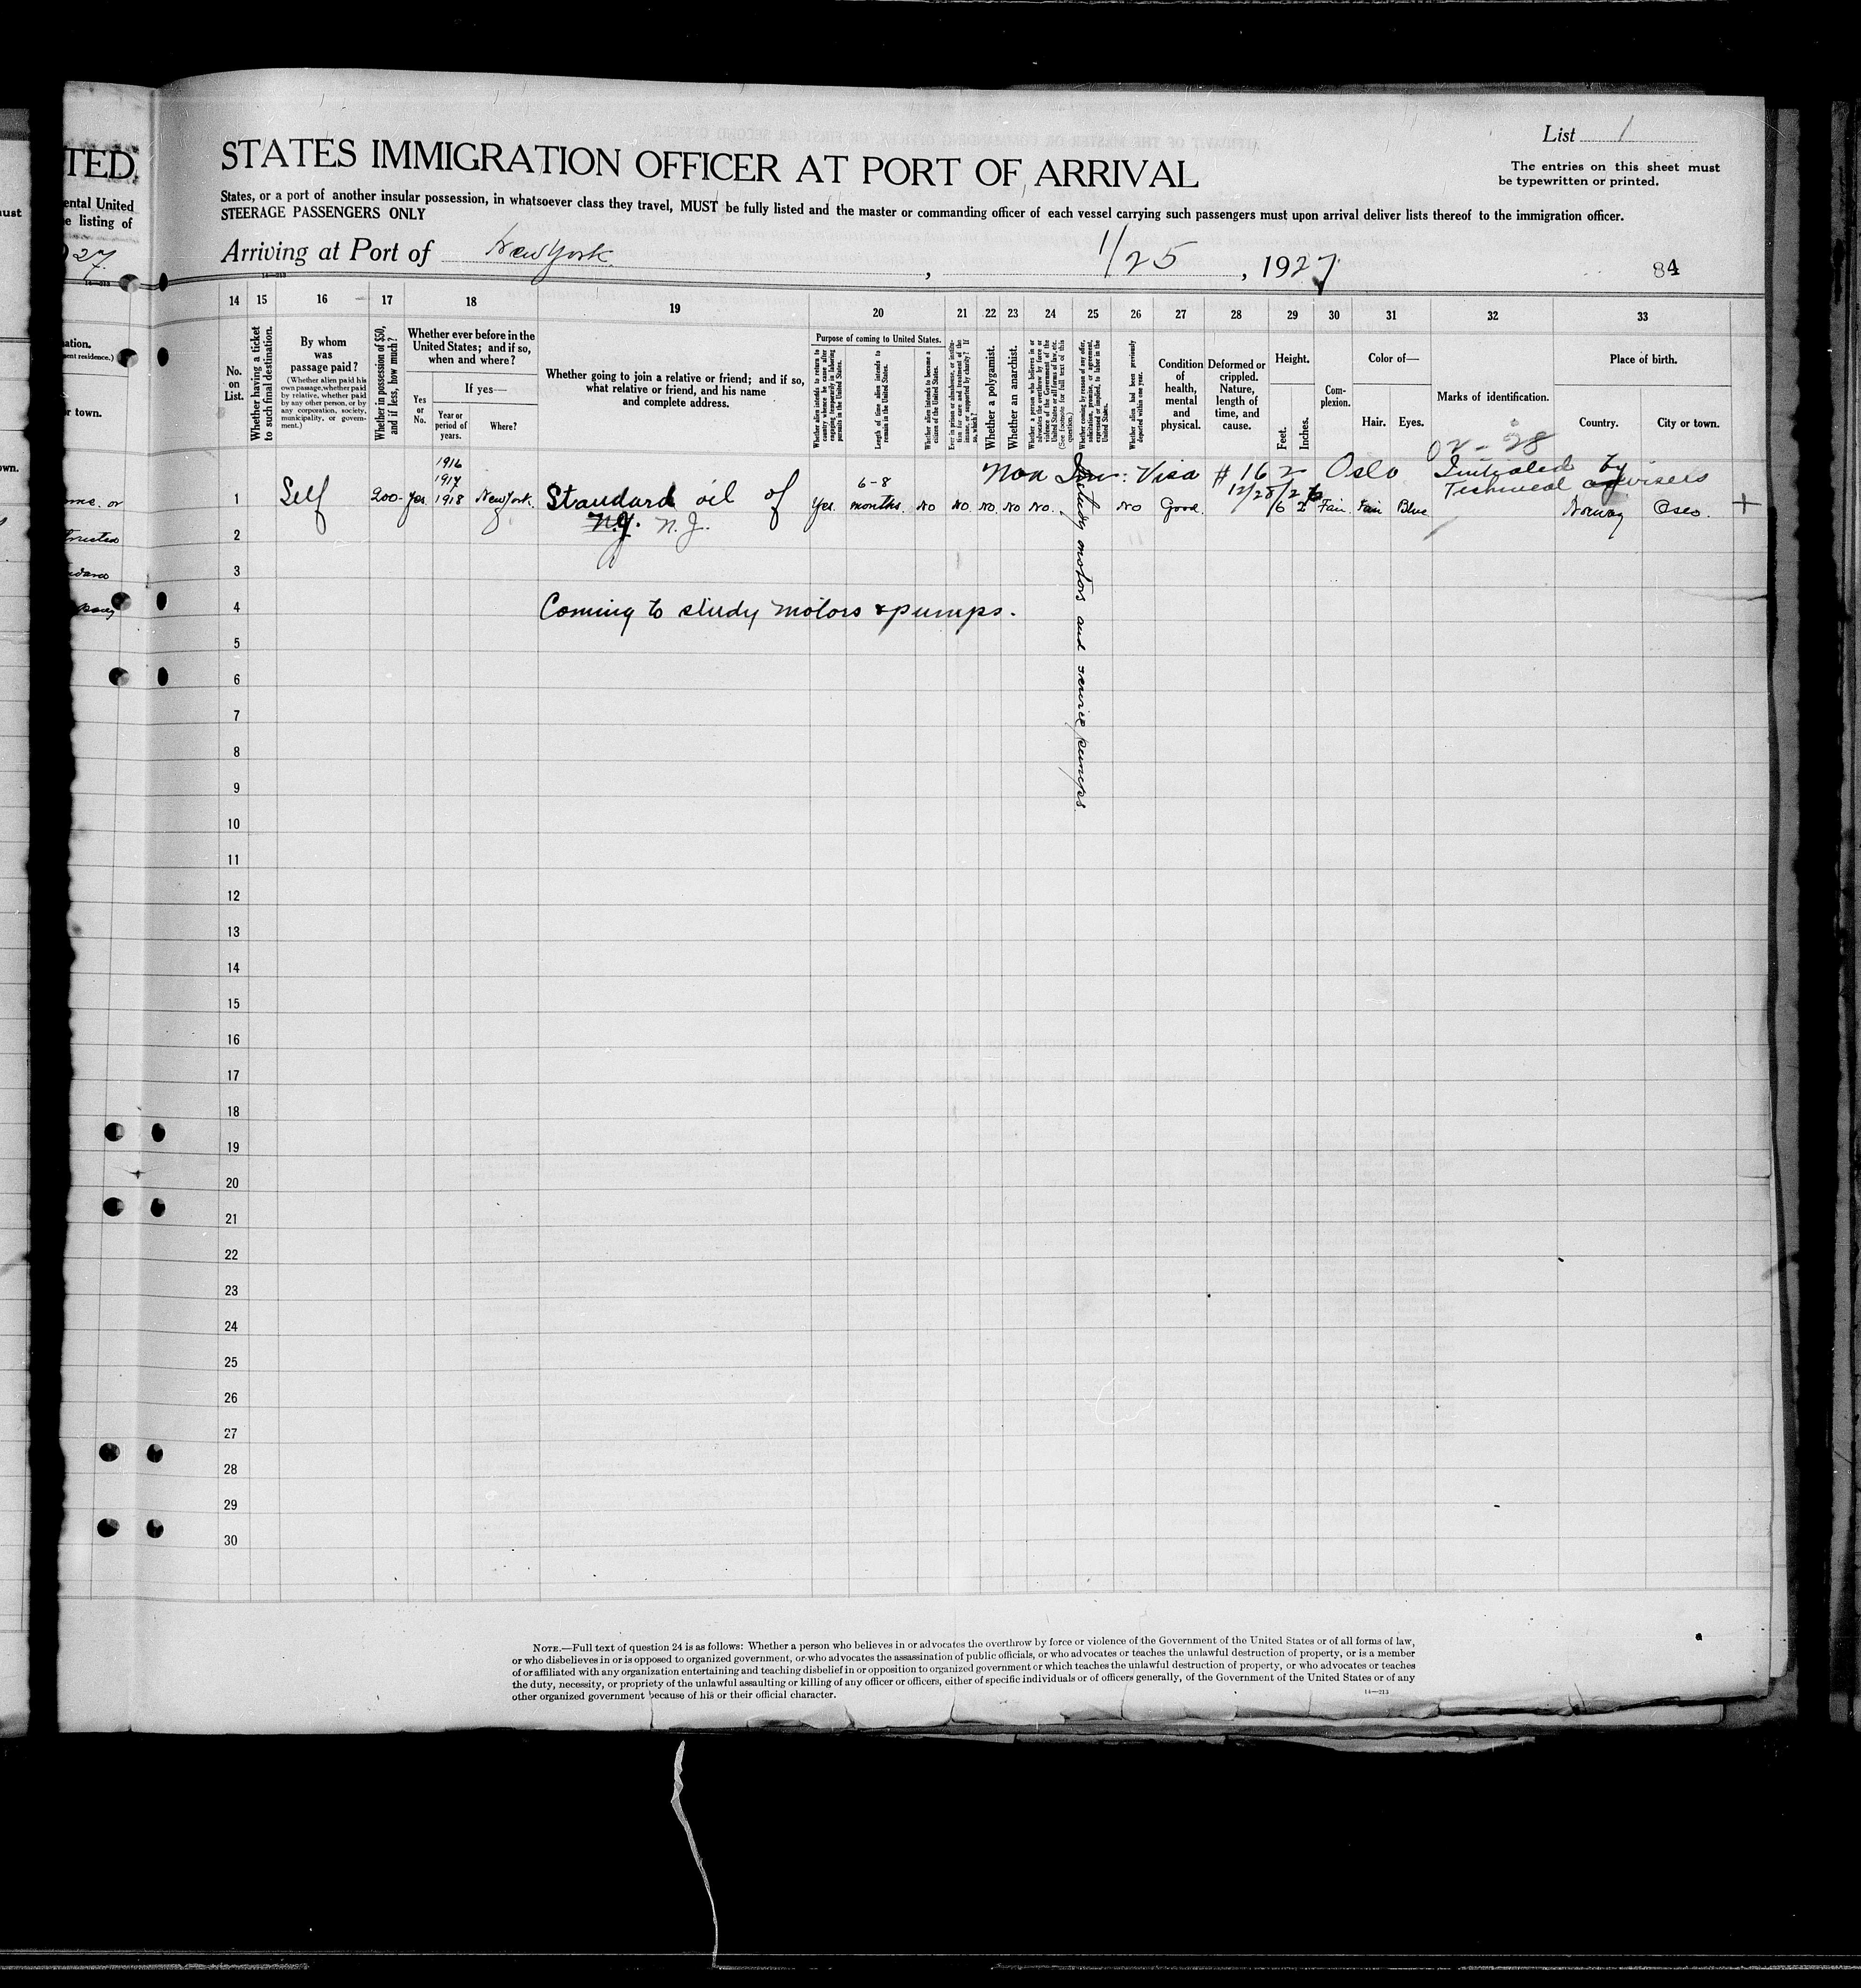 List 1
TED.
STATES IMMIGRATION OFFICER AT PORT OF ARRIVAL
The entries on this sheet must
be typewritten or printed.
ental United
e listing of
States, or a port of another insular possession, in whatsoever class they travel, MUST be fully listed and the master or commanding officer of each vessel carrying such passengers must upon arrival deliver lists thereof to the immigration officer.
STEERAGE PASSENGERS ONLY
27.
Arriving at Port of New York, 1/25, 1927
84
14—213
14 15 16 17 18 19 20 21 22 23 24 25 26 27 28 29 30 31 32 33
No. on List.
Whether having a ticket to such final destination.
By whom was passage paid?
(Whether alien paid his own passage, whether paid by relative, whether paid by any other person, or by any corporation, society, municipality, or government.)
Whether in possession of $50, and if less, how much?
Whether ever before in the United States; and if so, when and where?
Yes or No.
If yes—
Year or period of years.
Where?
Whether going to join a relative or friend; and if so, what relative or friend, and his name and complete address.
Purpose of coming to United States.
Whether alien intends to return to country whence he came after engaging temporarily in laboring pursuits in the United States.
Length of time alien intends to remain in the United States.
Whether alien intends to become a citizen of the United States.
Ever in prison or almshouse, or institution for care and treatment of the insane, or supported by charity? If so, which?
Whether a polygamist.
Whether an anarchist.
Whether a person who believes in or advocates the overthrow by force or violence of the Government of the United States or all forms of law, etc. (See footnote for full text of this question.)
Whether coming by reason of any offer, solicitation, promise, or agreement, expressed or implied, to labor in the United States.
Whether alien had been previously deported within one year.
Condition of health, mental and physical.
Deformed or crippled. Nature, length of time, and cause.
Height.
Feet.
Inches.
Complexion.
Color of—
Hair.
Eyes.
Marks of identification.
Place of birth.
Country.
City or town.
02-28
Non Im: Visa # 162 Oslo
12/28/26
by
Technical advisers
1 Self 200- Yes 1916 1917 1918 New York. Standard oil of Yes. 6-8 months. No No. No. No No. No Good. 6 2 Fair. Fair Blue Norway Oslo. +
N.Y. N.J.
study motors and service pumps.
2
3
4 Coming to study motors & pumps.
5
6
7
8
9
10
11
12
13
14
15
16
17
18
19
20
21
22
23
24
25
26
27
28
29
30
NOTE.—Full text of question 24 is as follows: Whether a person who believes in or advocates the overthrow by force or violence of the Government of the United States or of all forms of law,
or who disbelieves in or is opposed to organized government, or who advocates the assassination of public officials, or who advocates or teaches the unlawful destruction of property, or is a member
of or affiliated with any organization entertaining and teaching disbelief in or opposition to organized government or which teaches the unlawful destruction of property, or who advocates or teaches
the duty, necessity, or propriety of the unlawful assaulting or killing of any officer or officers, either of specific individuals or of officers generally, of the Government of the United States or of any
other organized government because of his or their official character.
14—213